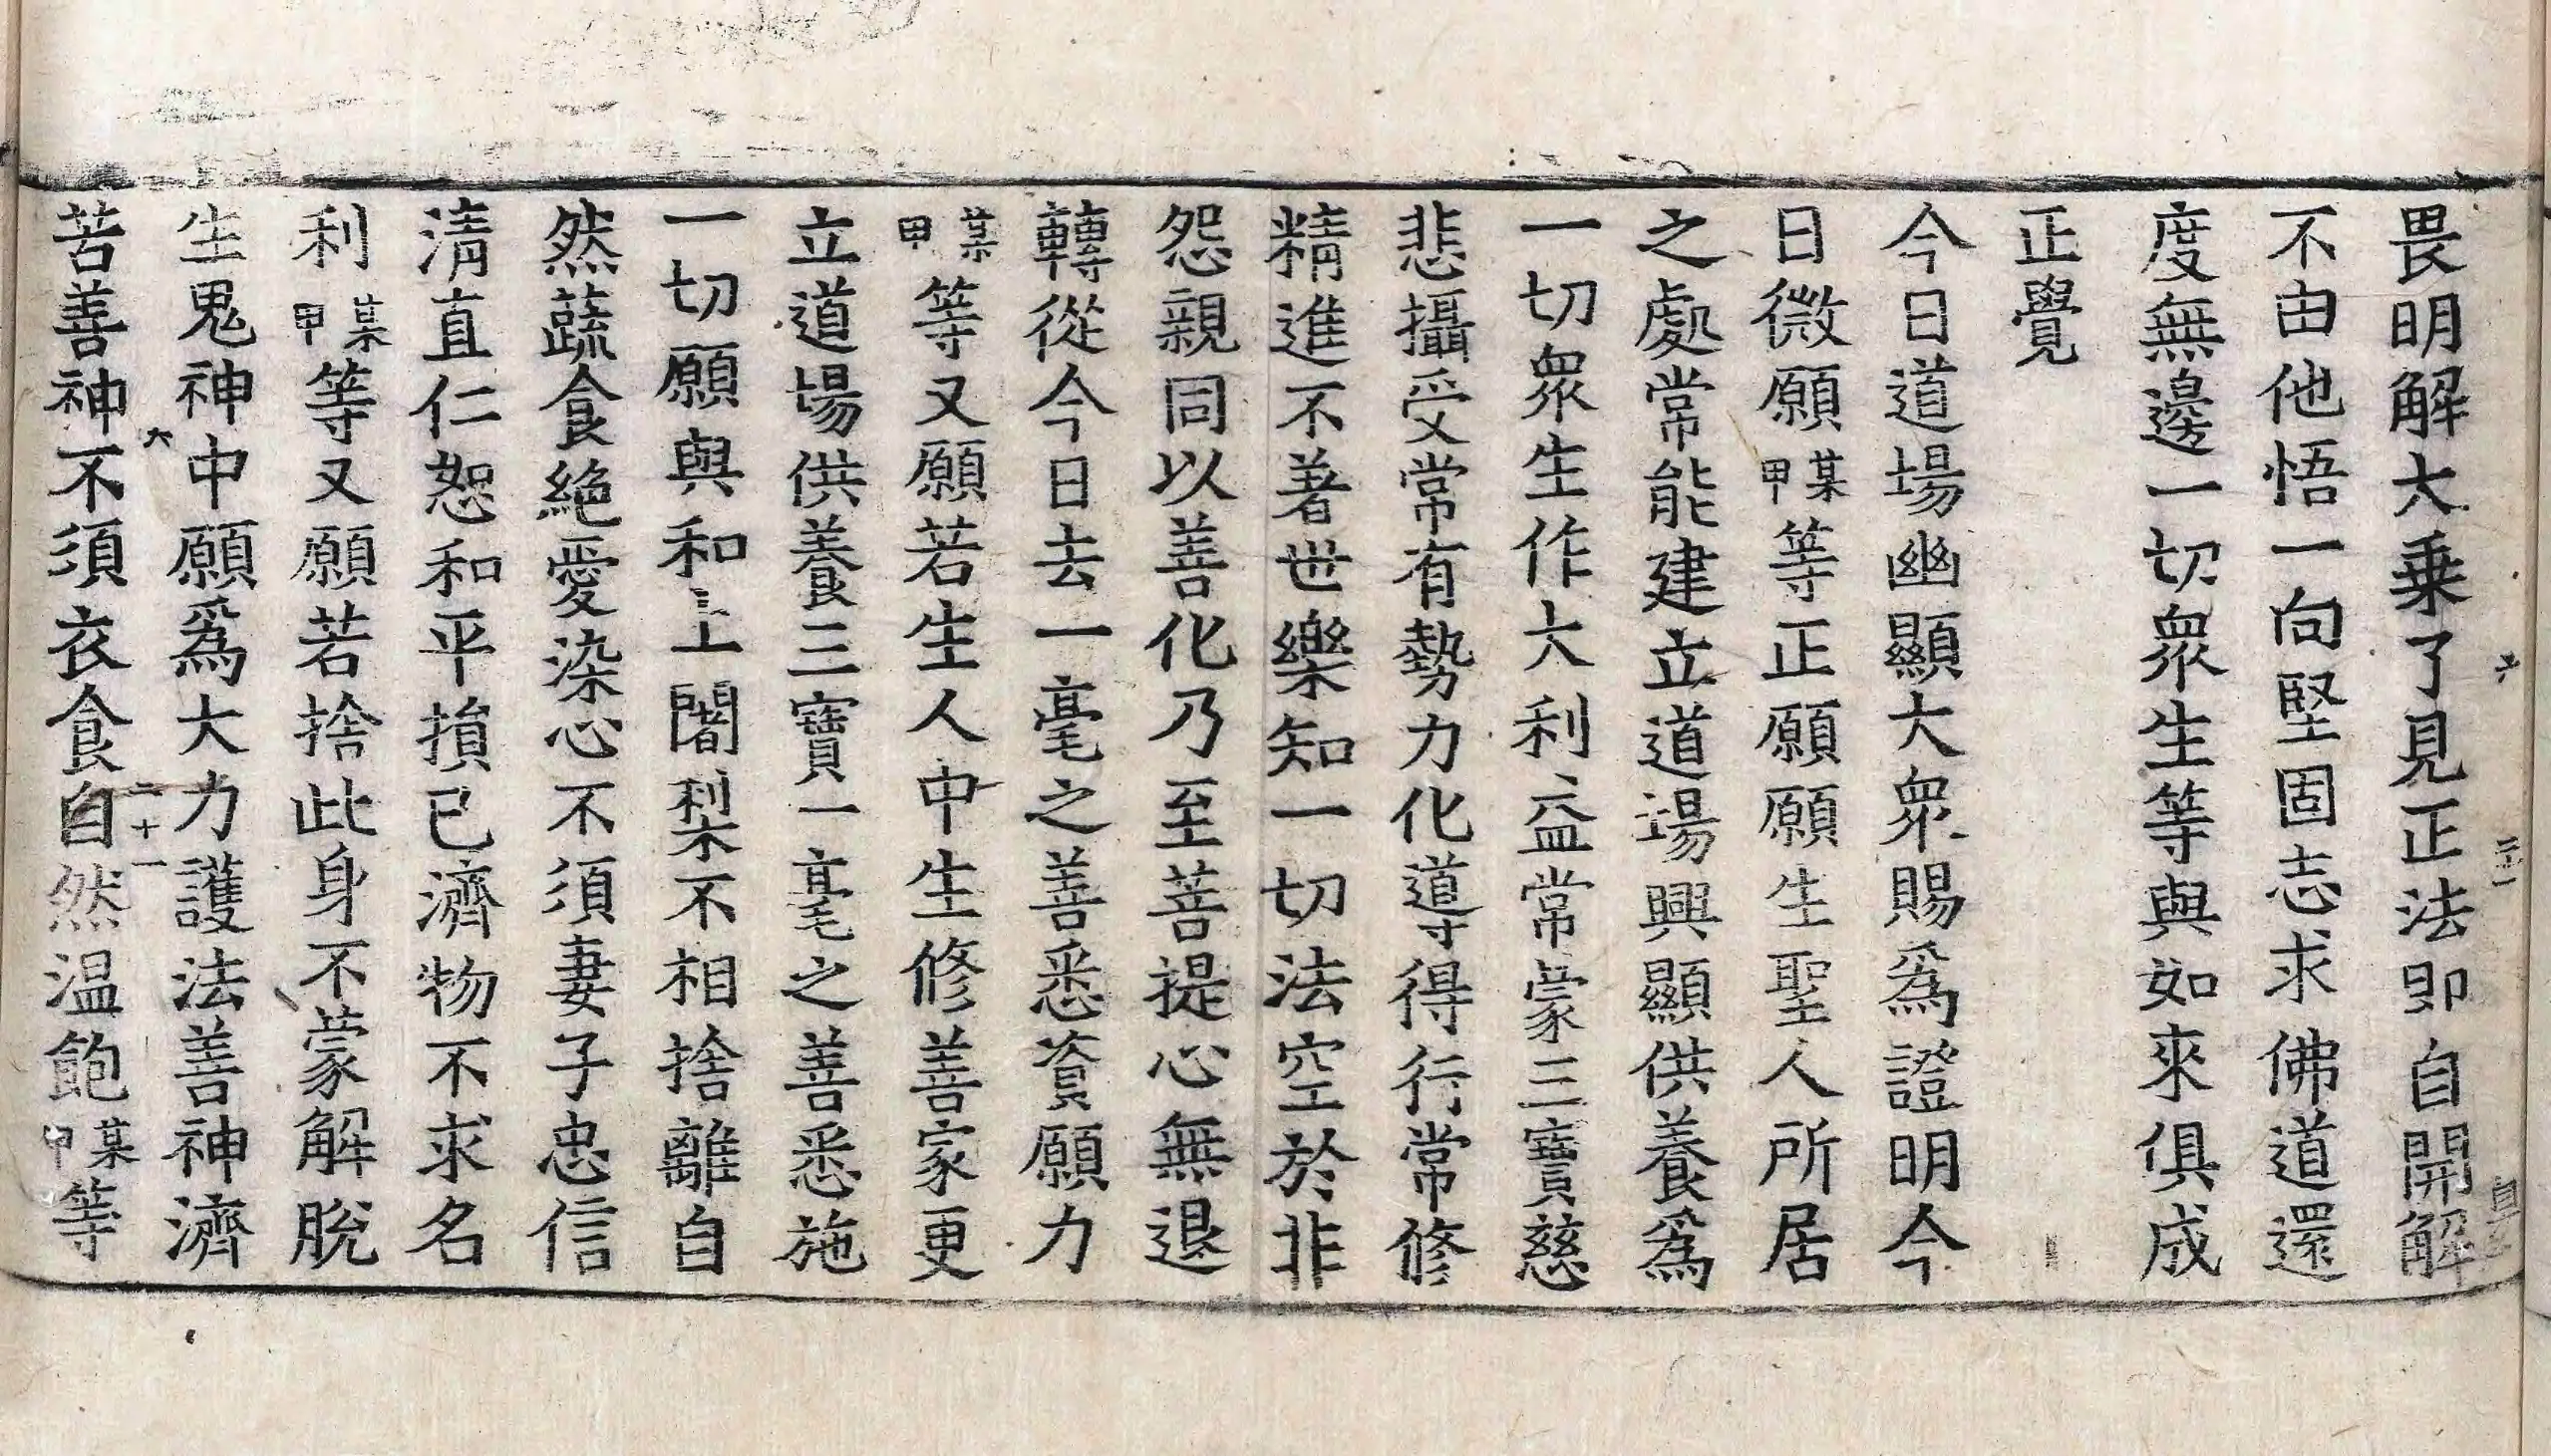 畏明解大乗了見正法卽自開解
不由他悟一向堅固志求佛道還
度無邊一切衆生等與如來俱成
正覺
今日道場幽顯大衆賜爲證明今
日微願某甲等正願願生聖人所居
之處常能建立道場興顯供養爲
一切衆生作大利益常蒙三寶慈
悲攝受常有勢力化導得行常修
精進不著世樂知一切法空於非
怨親同以善化乃至菩提心無退
轉從今日去一毫之善悉資願力
某甲等又願若生人中生修善家更
立道場供養三寶一毫之善悉施
一切願與和上闍梨不相捨離自
然蔬食絶愛染心不須妻子忠信
清直仁恕和平損已濟物不求名
利某甲等又願若捨此身不蒙解脫
生鬼神中願爲大力護法善神濟
六
二十一
苦善神不須衣食自然温飽某甲等